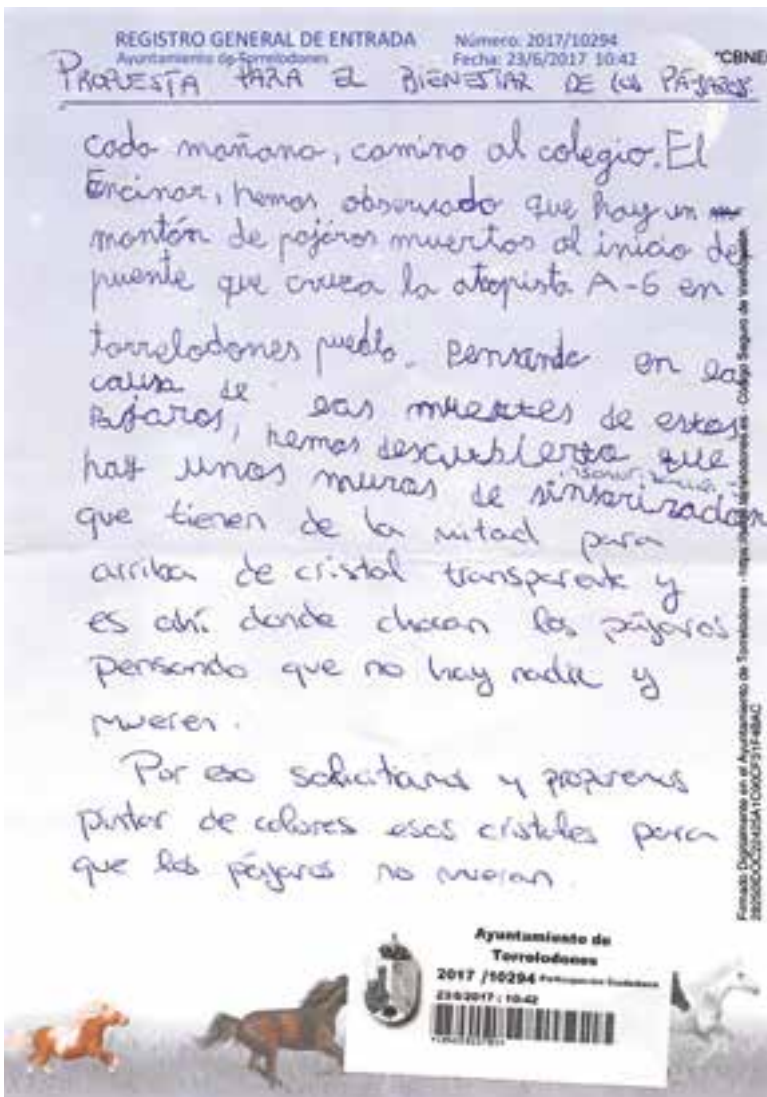 REGISTRO GENERAL DE ENTRADA Número: 2017/10294
Ayuntamiento de Torrelodones Fecha: 23/6/2017 10:42 "CBNE
PROPUESTA PARA EL BIENESTAR DE LOS PÁJAROS.
cada mañana, camino al colegio. El
Encinar, hemos observado que hay un
montón de pájaros muertos al inicio del
puente que cruza la atopista A-6 en
torrelodones pueblo. Pensando en la
causa de las muertes de estos
Pájaros, hemos descubierto que
hay unos muros de sinsorizadon
que tienen de la mitad para
arriba de cristal transparente y
es ahí donde chocan los pájaros
pensando que no hay nada y
mueren.
Por eso solicitamos y proponemos
pintar de colores esos cristales para
que los pájaros no mueran.
Ayuntamiento de
Torrelodones
2017 /10294 Participación Ciudadana
23/6/2017 : 10:42
Firmado Digitalmente en el Ayuntamiento de Torrelodones - Código Seguro de Verificación